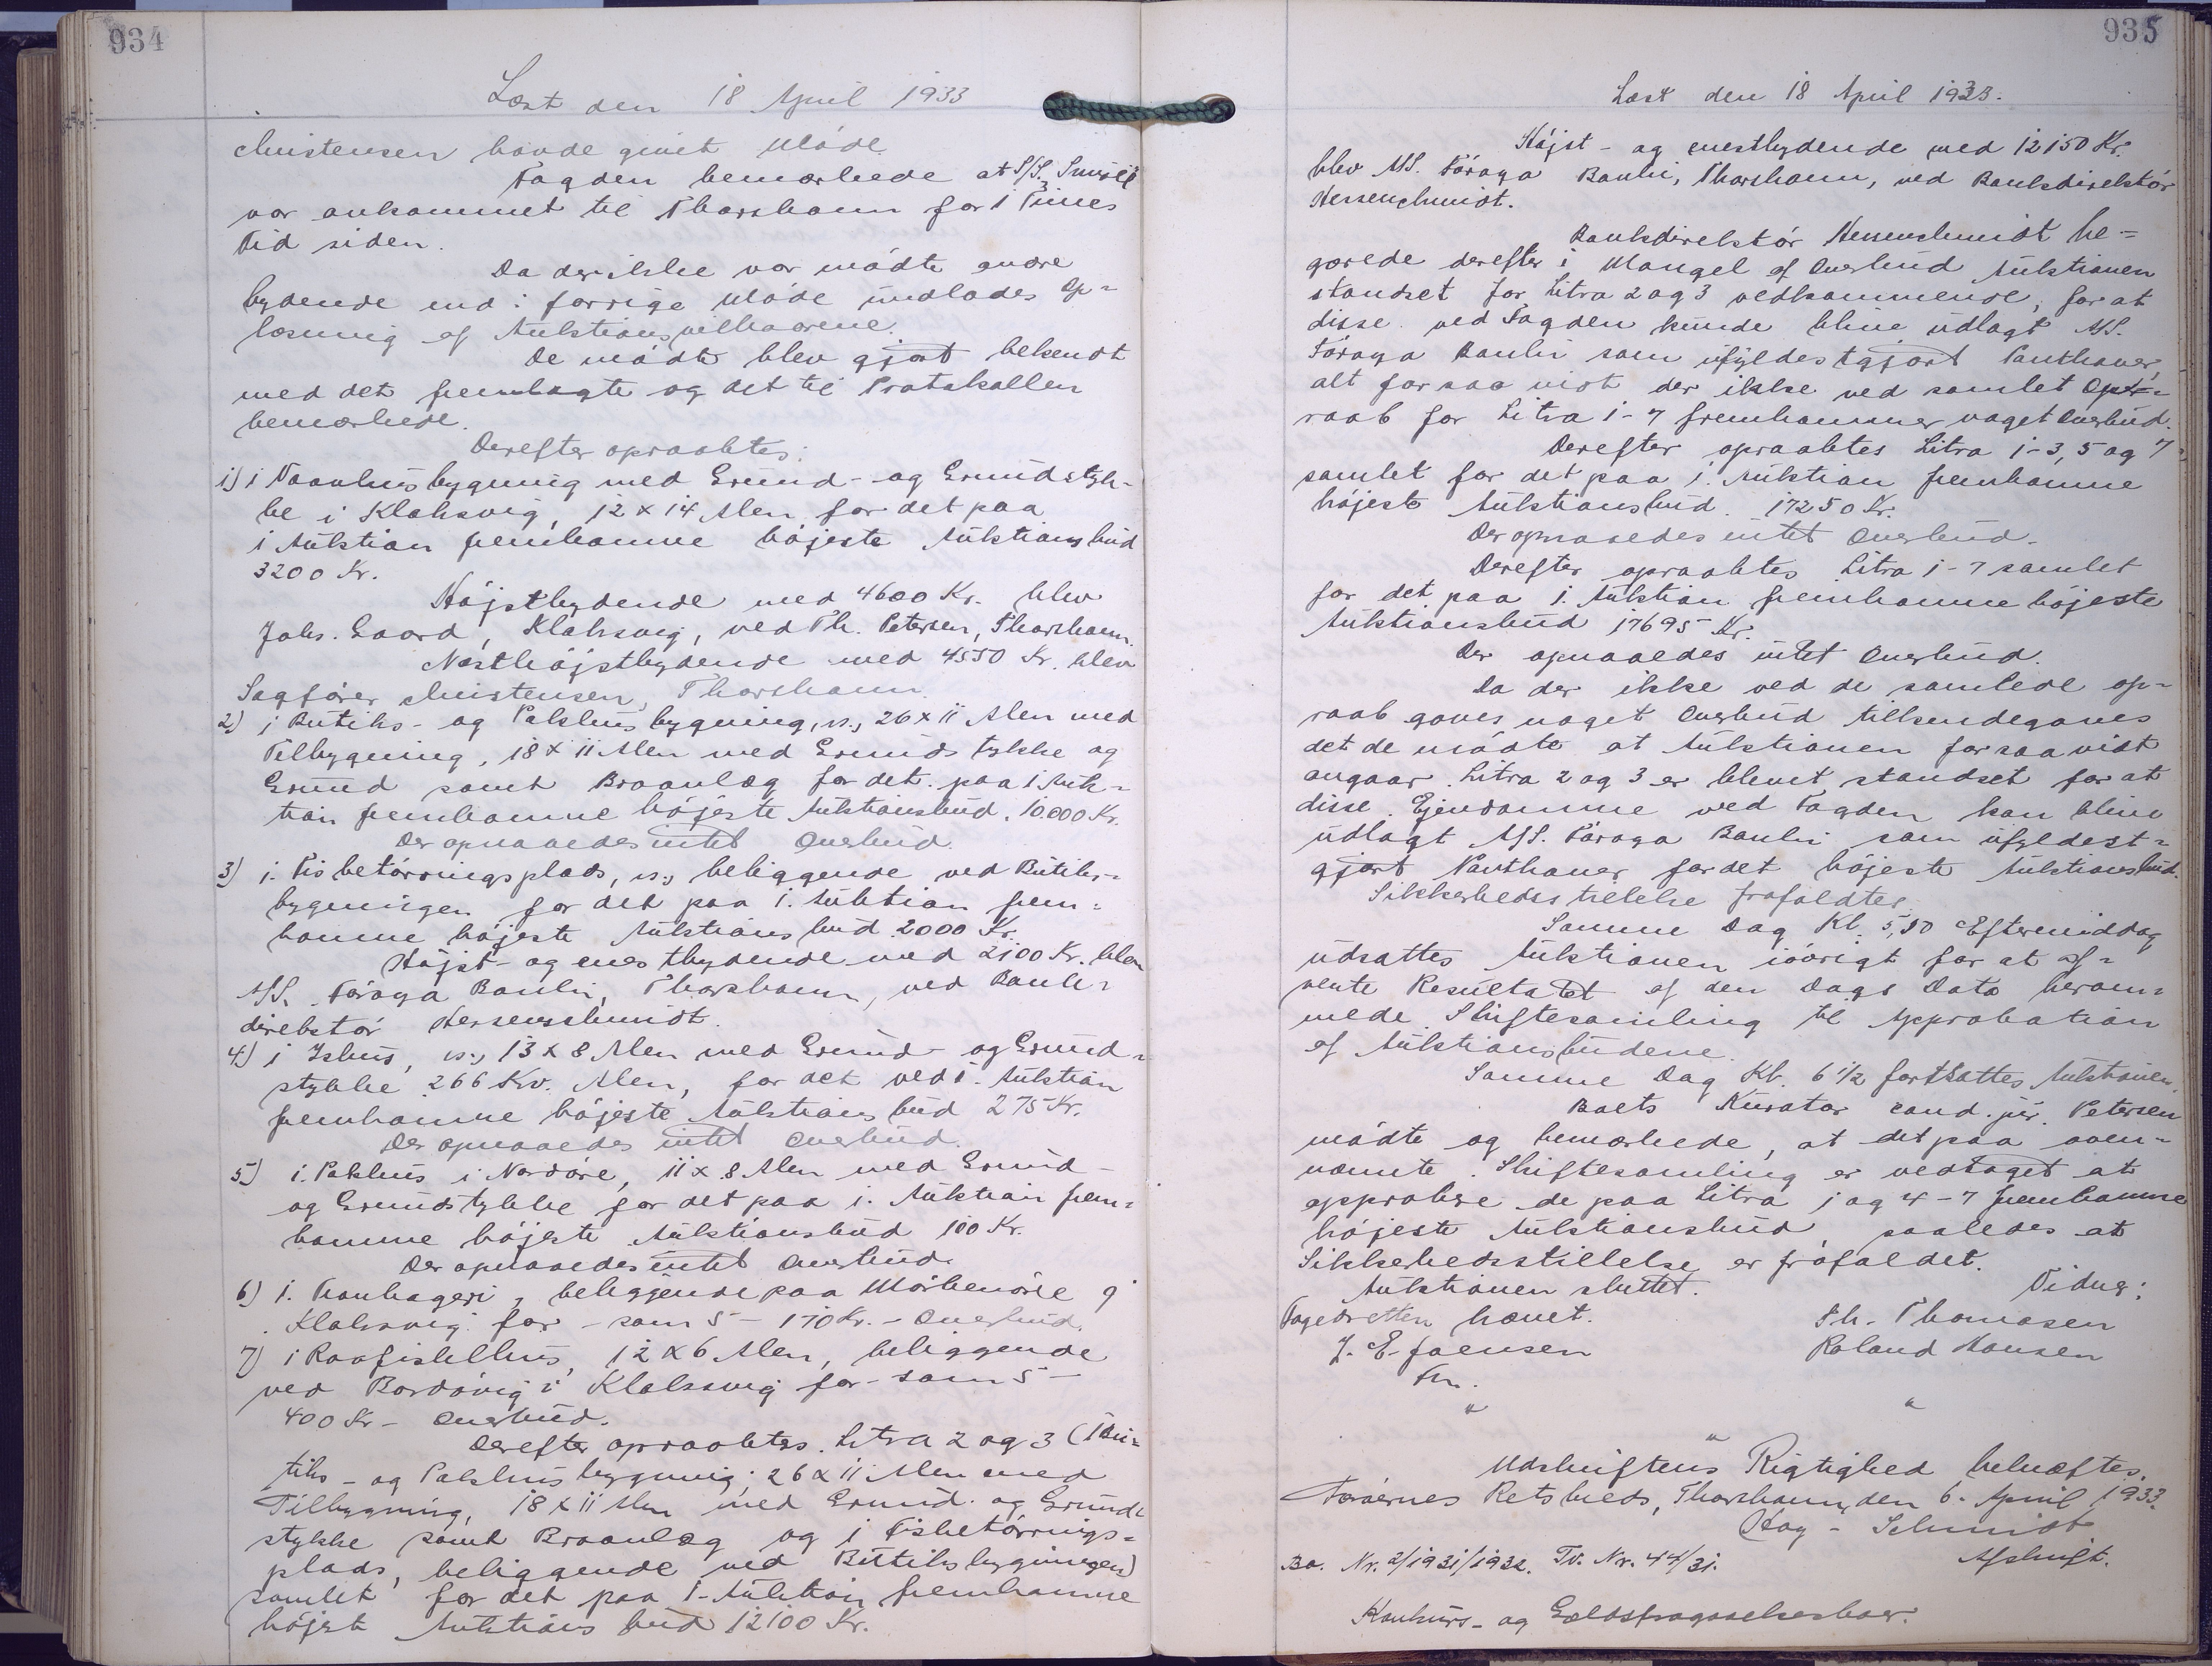 934
Læst den 18 April 1933
Christensen havde givet Møde.
Fogden bemærkede at S/S. Smiril
var ankommet til Thorshavn for 1 Times
Tid siden.
Da der ikke var mødte andre
bydende end i forrige Møde undlodes Op-
læsning af Auktionsvilkaarene.
De mødte blev gjort bekendt
med det fremlagte og det til Protokollen
bemærkede.
Derefter opraabtes:
1) 1 Vaanhusbygning med Grund- og Grundstyk-
ke i Klaksvig, 12 x 14 Alen for det paa
1 Auktion fremkomne højeste Auktionsbud
3200 Kr.
Højstbydende med 4600 Kr. blev
Johs. Gaard, Klaksvig, ved Th. Petersen, Thorshavn.
Næsthøjstbydende med 4550 Kr. blev
Sagfører Christensen, Thorshavn.
2) 1 Butiks- og Pakhusbygning, vs., 26 x 11 Alen med
Tilbygning, 18 x 11 Alen med Grundstykke og
Grund samt Broanlæg for det paa 1 Auk-
tion fremkomne højeste Auktionsbud, 10.000 Kr.
Der opnaaedes intet Overbud.
3) 1. Fisketørringsplads, vs., beliggende ved Butiks-
bygningen for det paa 1. Auktion frem-
komne højeste Auktionsbud 2000 Kr.
Højst- og enestbydende med 2100 Kr. blev
A/S. Föroya Banki, Thorshavn, ved Bank-
direktør Hersenschmidt.
4) 1 Ishus, vs., 13 x 8 Alen med Grund- og Grund-
stykke 266 Kv. Alen, for det ved 1. Auktion
fremkomne højeste Auktionsbud 275 Kr.
Der opnaaedes intet Overbud.
5) 1. Pakhus i Nordøre, 11 x 8 Alen med Grund-
og Grundstykke for det paa 1. Auktion frem-
komne højeste Auktionsbud 100 Kr.
Der opnaaedes intet Overbud.
6) 1. Trankogeri, beliggende paa Mørkenøre i
Klaksvig for - som 5 - 170 Kr. - Overbud.
7) 1 Raafiskehus, 12 x 6 Alen, beliggende
ved Bordövig i Klaksvig for - som 5 -
400 Kr - Overbud.
Derefter opraabtes Litra 2 og 3 (1 Bu-
tiks- og Pakhusbygning, 26 x 11 Alen med
Tilbygning, 18 x 11 Alen med Grund- og Grund-
stykke samt Broanlæg og 1 Fisketørrings-
plads, beliggende ved Butiksbygningen)
samlet for det paa 1. Auktion fremkomne
højest Auktions bud 12100 Kr.
935
Læst den 18 April 1933.
Højst- og enestbydende med 12150 Kr.
blev A/S. Föroya Banki, Thorshavn, ved Bankdirektør
Hersenschmidt.
Bankdirektør Hersenschmidt be-
gærede derefter i Mangel af Overbud Auktionen
standset for Litra 2 og 3 vedkommende, for at
disse ved Fogden kunde blive udlagt A/S.
Föroya Banki som ufyldestgjort Panthaver,
alt forsaavidt der ikke ved samlet Op-
raab for Litra 1-7 fremkommer noget Overbud.
Derefter opraabtes Litra 1-3, 5 og 7
samlet for det paa 1. Auktion fremkomne
højeste Auktionsbud. 17250 Kr.
Der opnaaedes intet Overbud.
Derefter opraabtes Litra 1-7 samlet
for det paa 1. Auktion fremkomne højeste
Auktionsbud 17695 Kr.
Der opnaaedes intet Overbud.
Da der ikke ved de samlede op-
raab gaves noget Overbud tilkendegaves
det de mødte at Auktionen forsaavidt
angaar Litra 2 og 3 er blevet standset for at
disse Ejendomme ved Fogden kan blive
udlagt A/S. Föroya Banki som ufyldest-
gjort Panthaver for det højeste Auktionsbud.
Sikkerhedsstillelse frafaldtes.
Samme Dag Kl. 5,50 Eftermiddag
udsattes Auktionen iøvrigt for at af-
vente Resultatet af den Dags Dato beram-
mede Skiftesamling til Approbation
af Auktionsbudene.
Samme Dag Kl. 6 1/2 fortsattes Auktionen.
Boets Kurator cand. jur. Petersen
mødte og bemærkede, at det paa oven-
nævnte Skiftesamling er vedtaget at
approbere de paa Litra 1 og 4-7 fremkomne
højeste Auktionsbud, saaledes at
Sikkerhedsstillelse er frafaldet.
Auktionen sluttet.
Vidner:
Fogedretten hævet.
Th. Thomasen
J. E. Joensen
Roland Hansen
Fm.
"
"
"
Udskriftens Rigtighed bekræftes.
Færøernes Retskreds, Thorshavn, den 6. April 1933.
Hoy-Schmidt
Afskrift.
Bo. Nr. 2/1931/1932. Tv. Nr. 44/31.
Konkurs- og Gældsfragaaelsesboer.